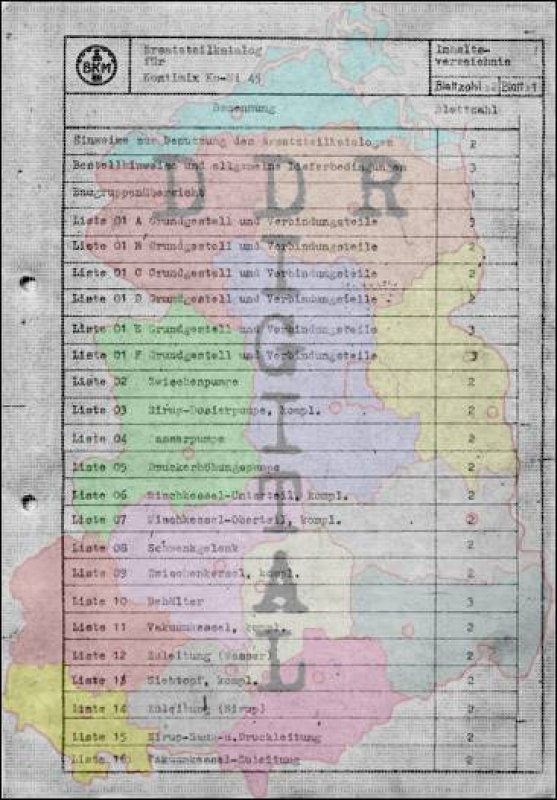 BKM
Ersatzteilkatalog
für
Kontimix Ko-Mi 45
Inhalts-
verzeichnis
Blattzahl: 2 Blatt: 1
Benennung Blattzahl
Hinweise zur Benutzung des Ersatzteilkatalogen 2
Bestellhinweise und allgemeine Lieferbedingungen 3
Baugruppenübersicht 1
Liste 01 A Grundgestell und Verbindungsteile 3
Liste 01 B Grundgestell und Verbindungsteile 2
Liste 01 C Grundgestell und Verbindungsteile 2
Liste 01 D Grundgestell und Verbindungsteile 2
Liste 01 E Grundgestell und Verbindungsteile 3
Liste 01 F Grundgestell und Verbindungsteile 3
Liste 02 Zwischenpumpe 2
Liste 03 Sirup-Dosierpumpe, kompl. 2
Liste 04 Wasserpumpe 2
Liste 05 Druckerhöhungspumpe 2
Liste 06 Mischkessel-Unterteil, kompl. 2
Liste 07 Mischkessel-Oberteil, kompl. 2
Liste 08 Schwenkgelenk 2
Liste 09 Zwischenkessel, kompl. 2
Liste 10 Behälter 3
Liste 11 Vakuumkessel, kompl. 2
Liste 12 Zuleitung (Wasser) 2
Liste 13 Siebtopf, kompl. 2
Liste 14 Zuleitung (Sirup) 2
Liste 15 Sirup-Saug-u.Druckleitung 2
Liste 16 Vakuumkessel-Zuleitung 2
DDR
DIGITAL